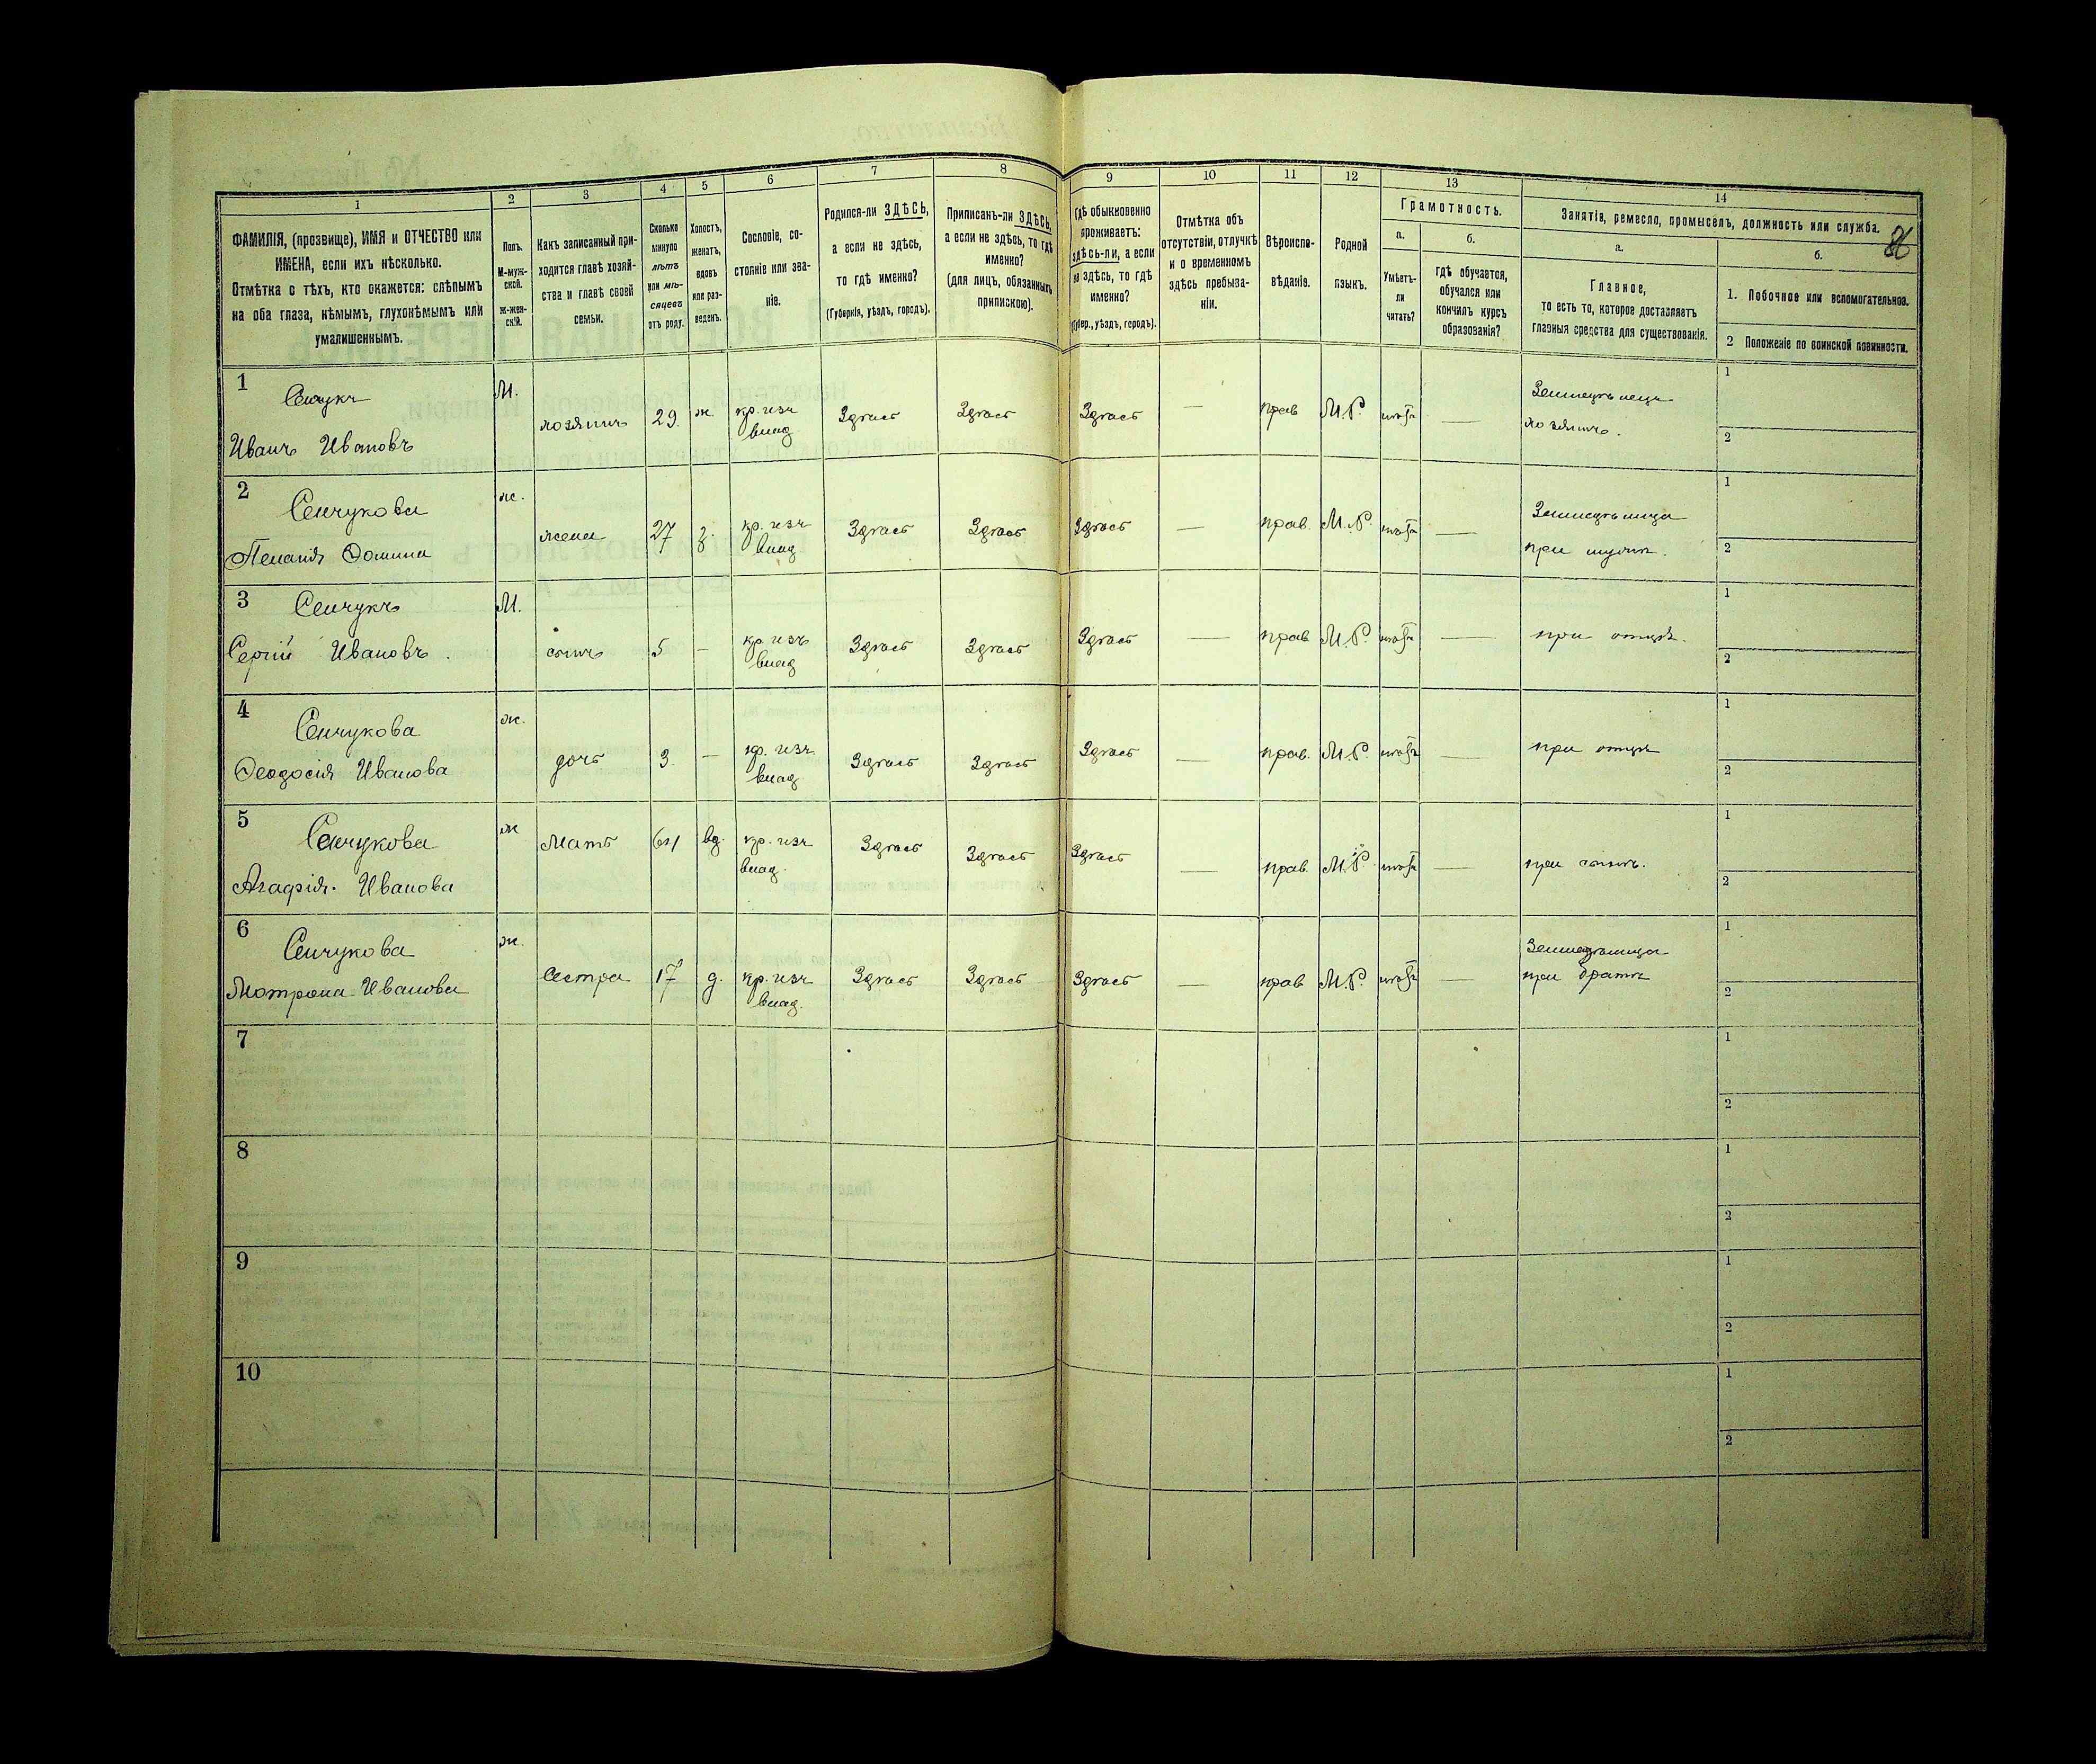 1
2
3
4
5
6
7
8
9
10
11
12
13
14
ФАМИЛІЯ, (прозвище), ИМЯ и ОТЧЕСТВО или
ИМЕНА, если ихъ нѣсколько.
Отмѣтка о тѣхъ, кто окажется: слѣпымъ
на оба глаза, нѣмымъ, глухонѣмымъ или
умалишеннымъ.
Полъ.
М-муж-
ской.
Ж-жен-
скій.
Какъ записанный при-
ходится главѣ хозяй-
ства и главѣ своей
семьи.
Сколько
минуло
лѣтъ
или мѣ-
сяцевъ
отъ роду.
Холостъ,
женатъ,
вдовъ
или раз-
веденъ.
Сословіе, со-
стояніе или зва-
ніе.
Родился-ли ЗДѢСЬ,
а если не здѣсь,
то гдѣ именно?
(Губернія, уѣздъ, городъ).
Приписанъ-ли ЗДѢСЬ,
а если не здѣсь, то гдѣ
именно?
(для лицъ, обязанныхъ
припискою).
Гдѣ обыкновенно
проживаетъ:
здѣсь-ли, а если
не здѣсь, то гдѣ
именно?
(Губер., уѣздъ, городъ).
Отмѣтка объ
отсутствіи, отлучкѣ
и о временномъ
здѣсь пребыва-
ніи.
Вѣроиспо-
вѣданіе.
Родной
языкъ.
Грамотность.
а.
Умѣетъ-
ли
читать?
б.
гдѣ обучается,
обучался или
кончилъ курсъ
образованія?
Занятія, ремесло, промыселъ, должность или служба.
86
а.
Главное,
то есть то, которое доставляетъ
главныя средства для существованія.
б.
1. Побочное или вспомогательное.
2 Положеніе по воинской повинности.
1
Сенчукъ
Иванъ Ивановъ
М. хозяинъ 29. ж. кр. изъ
влад.
Здѣсь Здѣсь Здѣсь — прав М.Р. —
Земледѣлецъ
хозяинъ.
1
2
2
Сенчукова
Пелагія Фомина
ж. жена 27 з. кр. изъ
влад.
Здѣсь Здѣсь Здѣсь — прав. М.Р. —
Земледѣлица
при мужѣ.
1
2
3
Сенчукъ
Сергій Ивановъ.
М. сынъ 5 — кр. изъ
влад.
Здѣсь Здѣсь Здѣсь — прав М.Р. —
при отцѣ.
1
2
4
Сенчукова
Феодосія Иванова
ж. дочь 3. — кр. изъ
влад.
Здѣсь Здѣсь Здѣсь — прав. М.Р. —
при отцѣ
1
2
5
Сенчукова
Агафія. Иванова
ж Мать вд. кр. изъ
влад.
Здѣсь Здѣсь Здѣсь — прав. М.Р. —
при сынѣ.
1
2
6
Сенчукова
Мотрона Иванова
ж. Сестра 17 д. кр. изъ
влад.
Здѣсь Здѣсь Здѣсь — прав М.Р. —
Земледѣлица
при братѣ
1
2
7
1
2
8
1
2
9
1
2
10
1
2